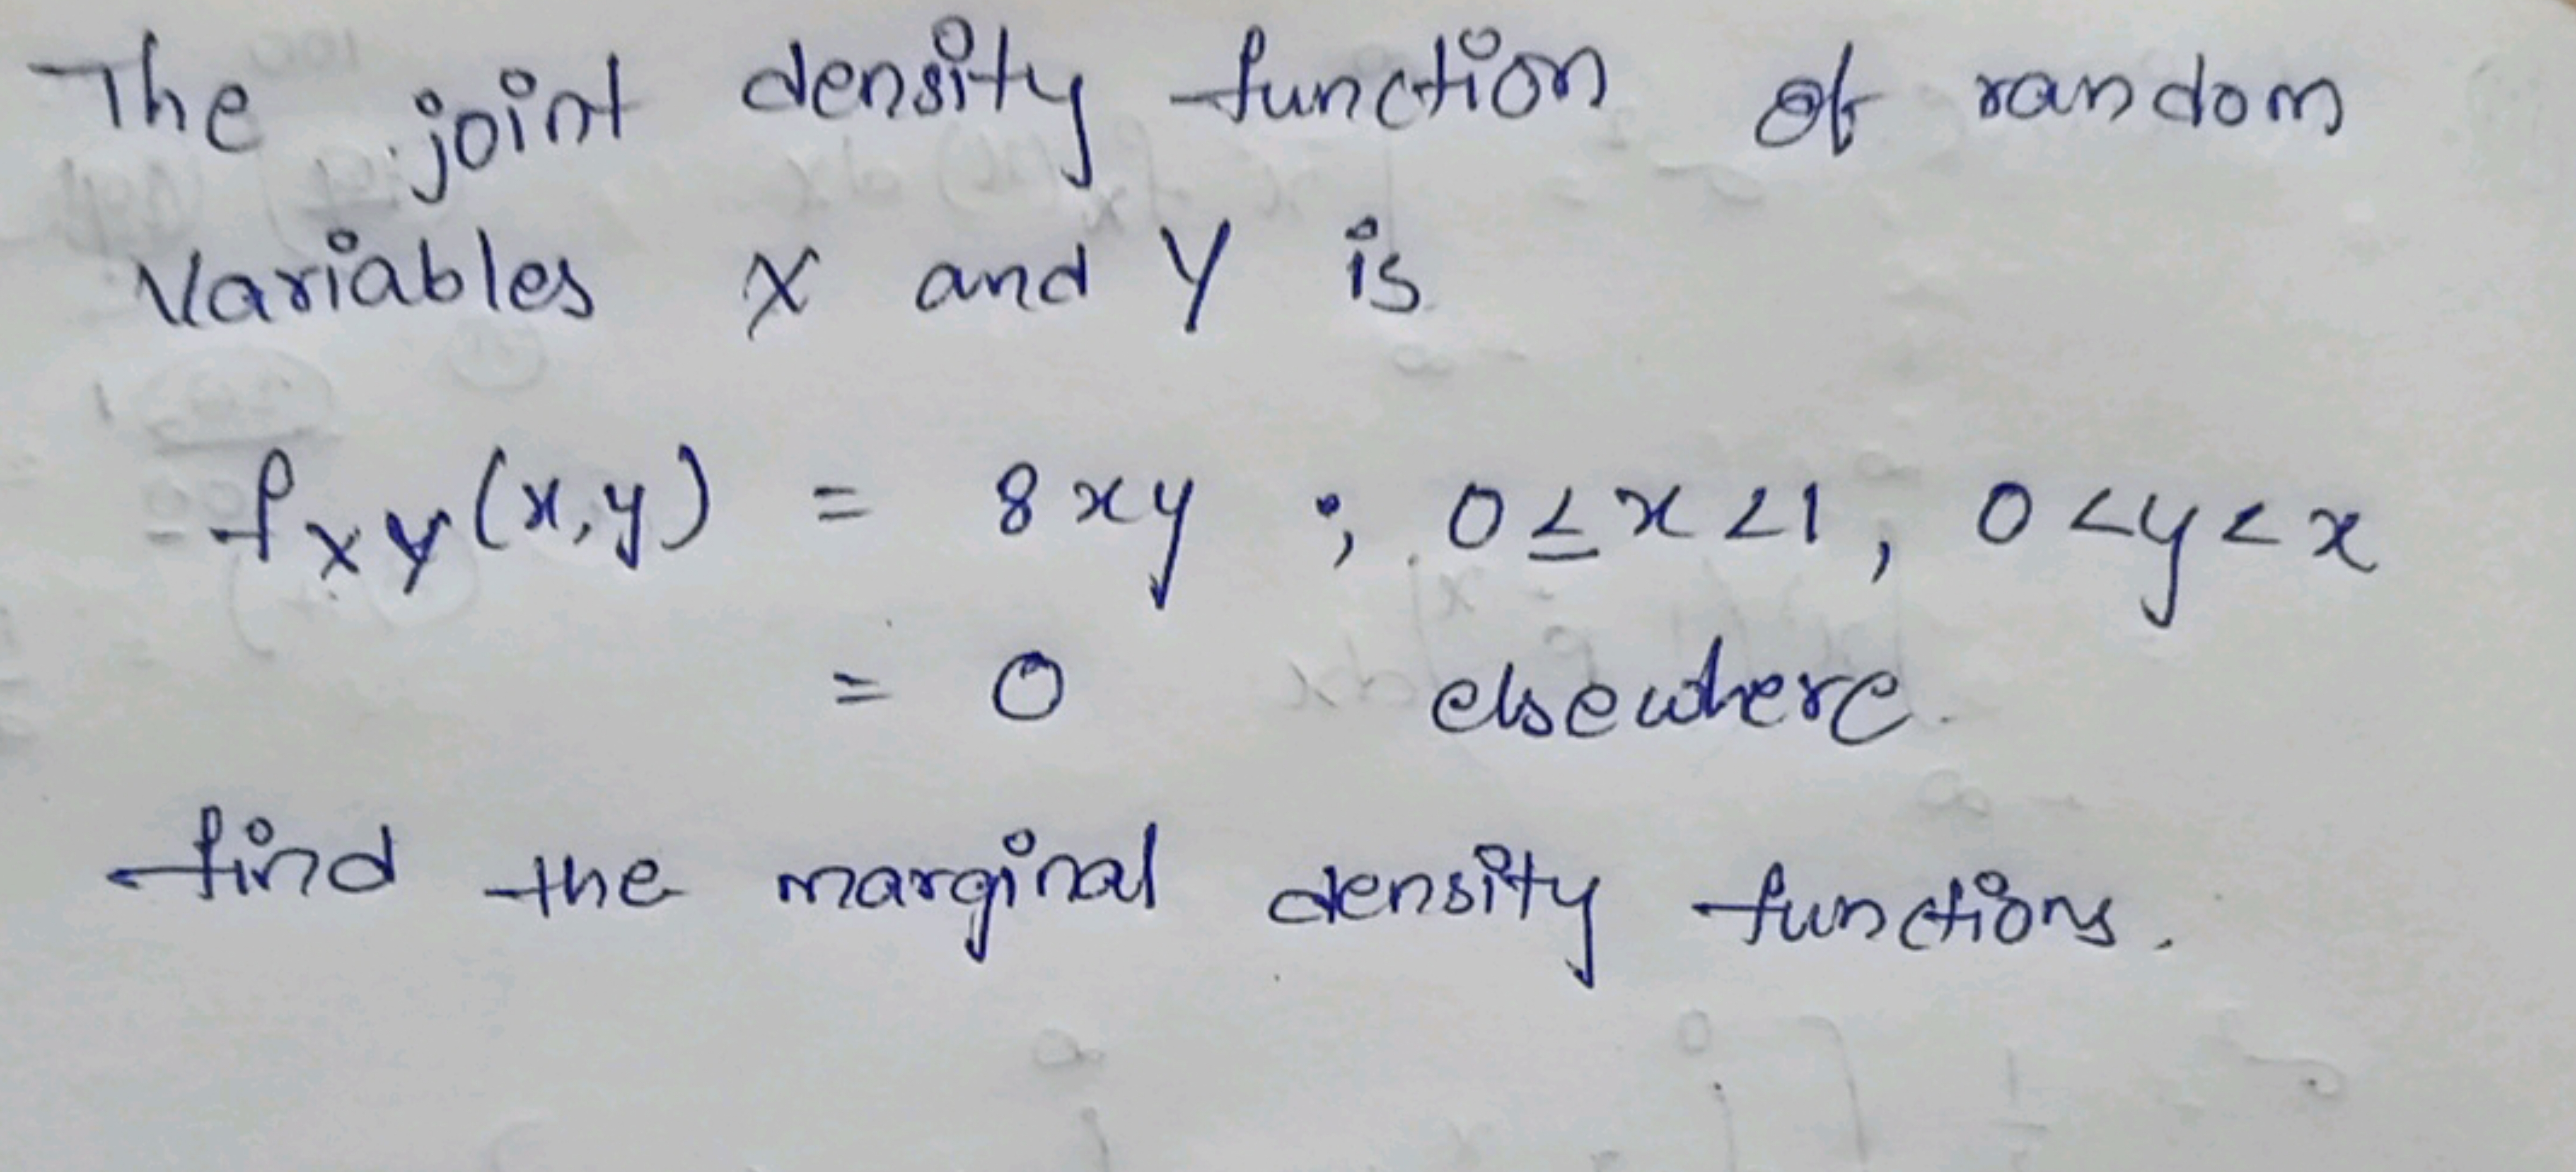 The joint density function of random
Variables X and Y is
fxy(x,y) = 8xy ; 0≤x<1, 0<y<x
= 0 elsewhere.
find the marginal density functions.